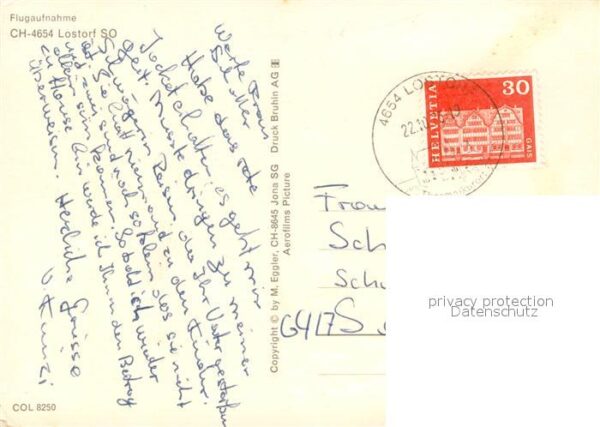 Flugaufnahme
CH-4654 Lostorf SO
Werte Frau
Habe das rote
Jackek halten, es geht mir
gut. Musste dringen zu meiner
Schwägerin Reisen, da Ihr Vater gestorben
ist. Sie hat niemand zu den Kinder.
und zwei sind noch so klein, das sie nicht
allein sein können. Sobald ich wieder
zu Hause bin werde ich Ihnen den Betrag
überweisen. Herzliche Grüsse
COL 8250
Copyright © by M. Eggler, CH-8645 Jona SG Druck Bruhin AG
Aerofilms Picture
4654 LOSTORF
22.
HELVETIA
30
GAIS
Frau
Sch
Sch
6417 S
privacy protection
Datenschutz